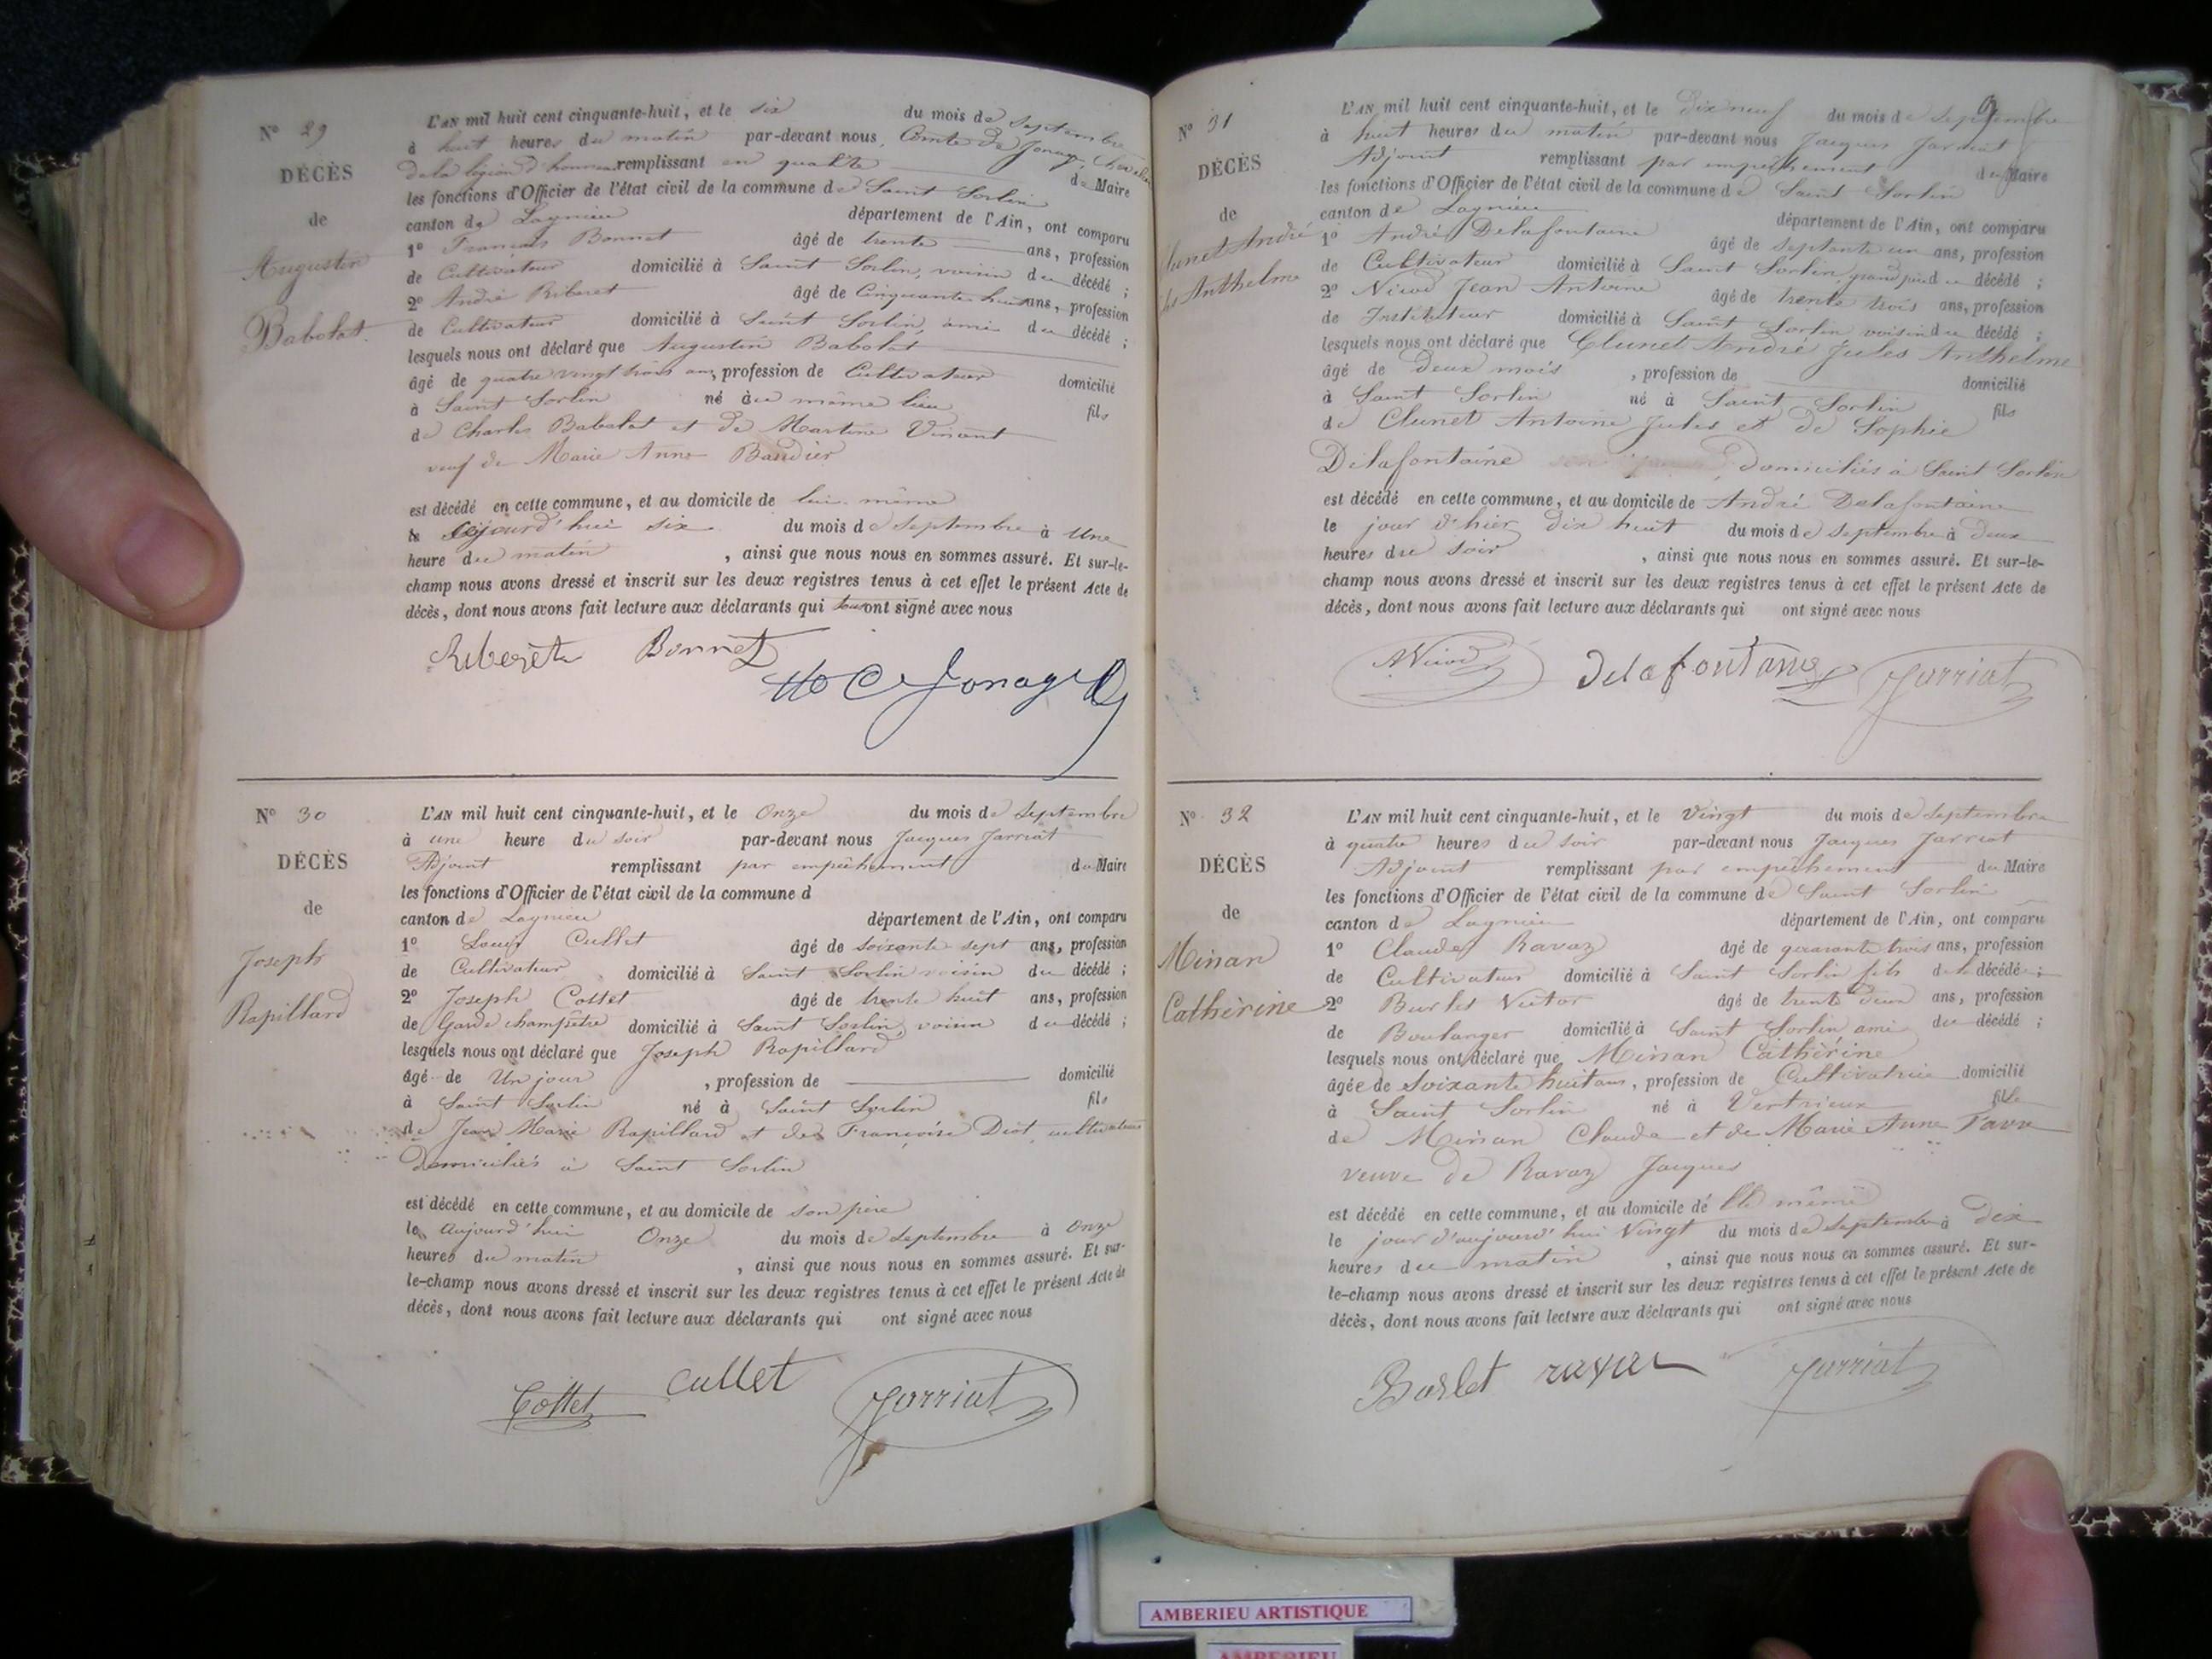 N° 29
DÉCÈS
de
Augustin
Babolat.
L'AN mil huit cent cinquante-huit, et le six du mois de Septembre
à huit heures du matin par-devant nous, Comte de Jonage, Chevalier
de la légion d'honneur remplissant en qualité de Maire
les fonctions d'Officier de l'état civil de la commune de Saint Sorlin
canton de Lagnieu département de l'Ain, ont comparu
1° François Bonnet âgé de trente ans, profession
de Cultivateur domicilié à Saint Sorlin, voisin du décédé ;
2° André Riberet âgé de Cinquante huit ans, profession
de Cultivateur domicilié à Saint Sorlin, ami du décédé ;
lesquels nous ont déclaré que Augustin Babolat
âgé de quatre vingt trois ans, profession de Cultivateur domicilié
à Saint Sorlin né au même lieu fils
de Charles Babolat et de Martine Vinant
veuf de Marie Anne Baudier
est décédé en cette commune, et au domicile de lui même
le aujourd'hui six du mois de Septembre à Une
heure du matin, ainsi que nous nous en sommes assuré. Et sur-le-
champ nous avons dressé et inscrit sur les deux registres tenus à cet effet le présent Acte de
décès, dont nous avons fait lecture aux déclarants qui tous ont signé avec nous
Riberet Bonnet
Jonage
N° 30
DÉCÈS
de
Joseph
Rapillard
L'AN mil huit cent cinquante-huit, et le Onze du mois de Septembre
à une heure du soir par-devant nous Jacques Jarriat
Adjoint remplissant par empêchement du Maire
les fonctions d'Officier de l'état civil de la commune d
canton de Lagnieu département de l'Ain, ont comparu
1° Louis Cullet âgé de soixante sept ans, profession
de Cultivateur domicilié à Saint Sorlin voisin du décédé ;
2° Joseph Cottet âgé de trente huit ans, profession
de Garde champêtre domicilié à Saint Sorlin, voisin du décédé ;
lesquels nous ont déclaré que Joseph Rapillard
âgé de Un jour, profession de domicilié
à Saint Sorlin né à Saint Sorlin fils
de Jean Marie Rapillard et de Françoise Diot, cultivateurs
domiciliés à Saint Sorlin
est décédé en cette commune, et au domicile de son père
le aujourd'hui Onze du mois de Septembre à Onze
heures du matin, ainsi que nous nous en sommes assuré. Et sur-
le-champ nous avons dressé et inscrit sur les deux registres tenus à cet effet le présent Acte de
décès, dont nous avons fait lecture aux déclarants qui ont signé avec nous
Cottet cullet Jarriat
9
N° 31
DÉCÈS
de
Clunet André
Jules Anthelme
L'AN mil huit cent cinquante-huit, et le Dix neuf du mois de Septembre
à huit heures du matin par-devant nous Jacques Jarriat
Adjoint remplissant par empêchement du Maire
les fonctions d'Officier de l'état civil de la commune de Saint Sorlin
canton de Lagnieu département de l'Ain, ont comparu
1° André Delafontaine âgé de septante un ans, profession
de Cultivateur domicilié à Saint Sorlin, grand père du décédé ;
2° Nicod Jean Antoine âgé de trente trois ans, profession
de Instituteur domicilié à Saint Sorlin voisin du décédé ;
lesquels nous ont déclaré que Clunet André Jules Anthelme
âgé de Deux mois, profession de domicilié
à Saint Sorlin né à Saint Sorlin fils
de Clunet Antoine Jules et de Sophie
Delafontaine domiciliés à Saint Sorlin
est décédé en cette commune, et au domicile de André Delafontaine
le jour d'hier dix huit du mois de Septembre à Deux
heures du Soir, ainsi que nous nous en sommes assuré. Et sur-le-
champ nous avons dressé et inscrit sur les deux registres tenus à cet effet le présent Acte de
décès, dont nous avons fait lecture aux déclarants qui ont signé avec nous
ANicod Delafontaine Jarriat
N° 32
DÉCÈS
de
Minan
Cathèrine
L'AN mil huit cent cinquante-huit, et le Vingt du mois de Septembre
à quatre heures du soir par-devant nous Jacques Jarriat
Adjoint remplissant par empêchement du Maire
les fonctions d'Officier de l'état civil de la commune de Saint Sorlin
canton de Lagnieu département de l'Ain, ont comparu
1° Claude Ravaz âgé de quarante trois ans, profession
de Cultivateur domicilié à Saint Sorlin fils de la décédée ;
2° Burlet Victor âgé de trente deux ans, profession
de Boulanger domicilié à Saint Sorlin ami du décédé ;
lesquels nous ont déclaré que Minan Cathèrine
âgée de Soixante huit ans, profession de Cultivatrice domicilié
à Saint Sorlin né à Vertrieux fille
de Minan Claude et de Marie Anne Favre
veuve de Ravaz Jacques
est décédé en cette commune, et au domicile de Elle même
le jour d'aujourd'hui Vingt du mois de Septembre à Dix
heures du matin, ainsi que nous nous en sommes assuré. Et sur-
le-champ nous avons dressé et inscrit sur les deux registres tenus à cet effet le présent Acte de
décès, dont nous avons fait lecture aux déclarants qui ont signé avec nous
Burlet ravaz Jarriat
AMBERIEU ARTISTIQUE
AMBERIEU